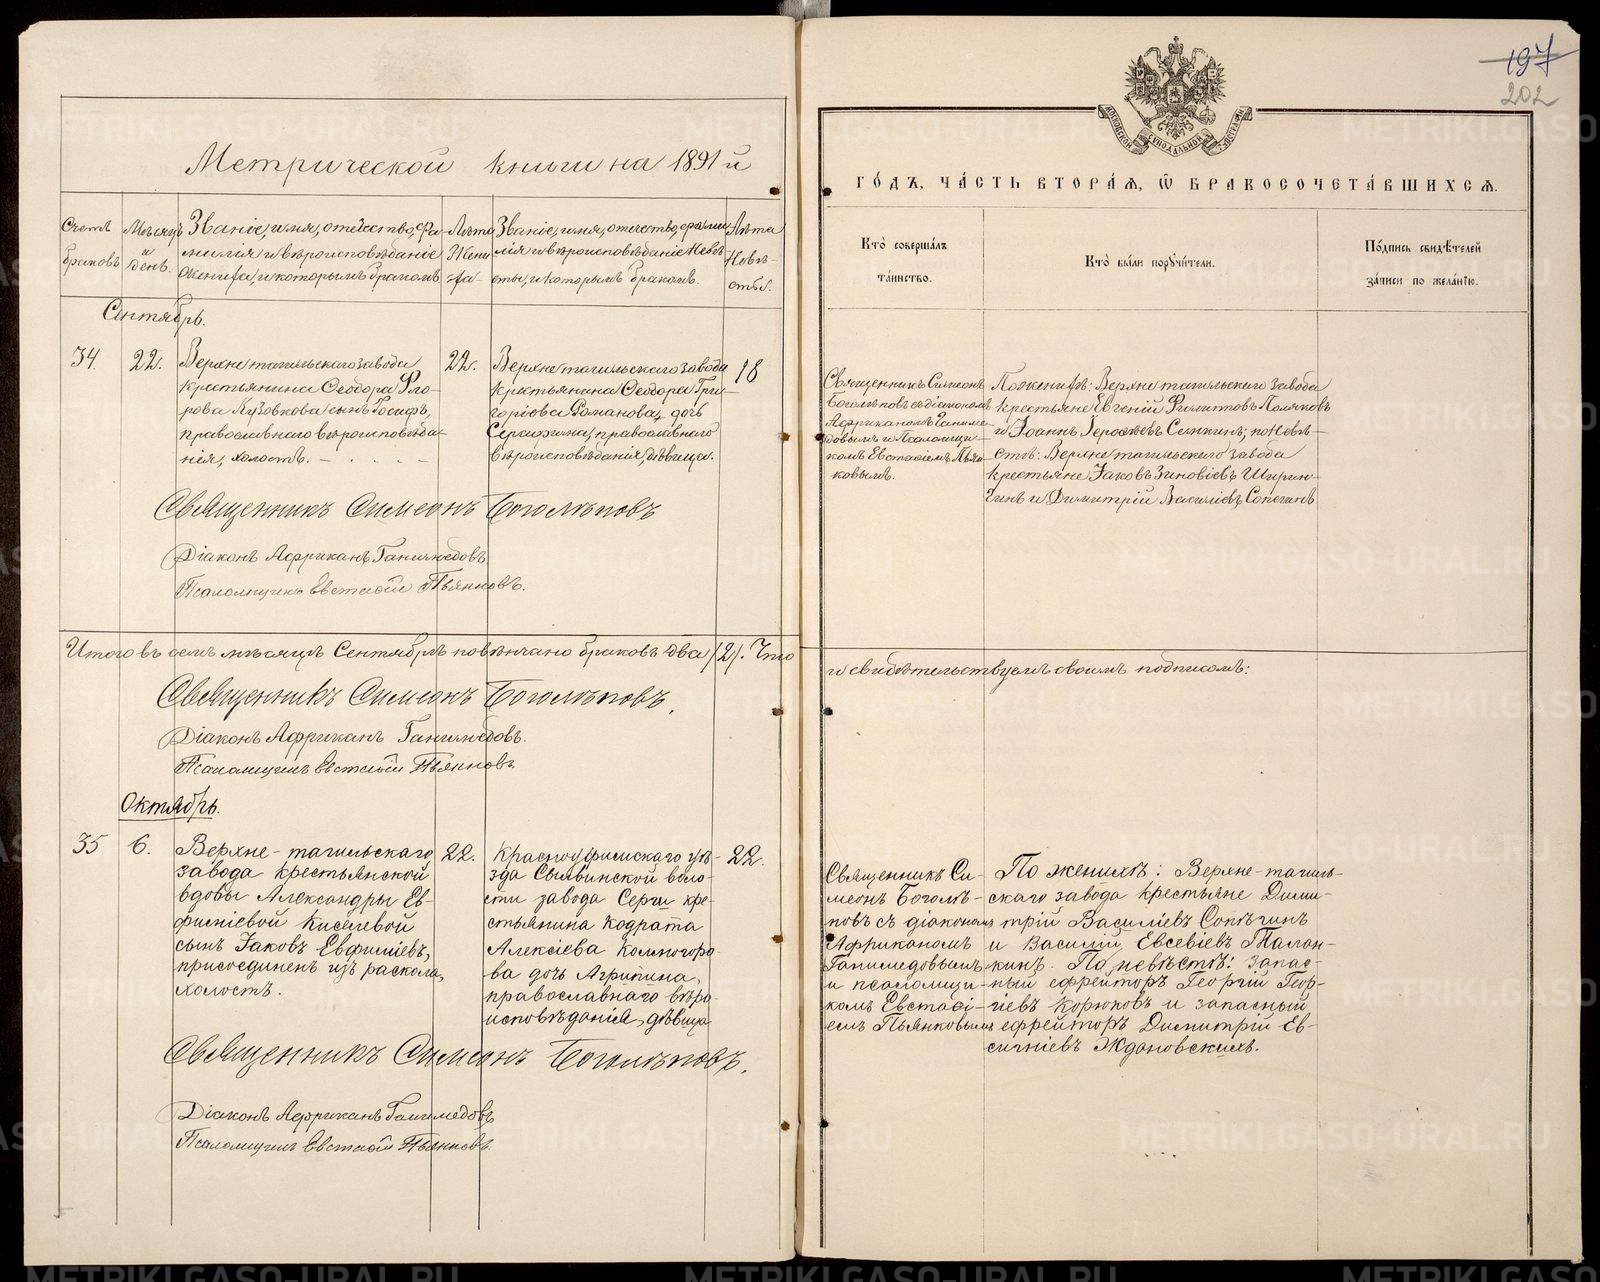 197
202
Метрической книги на 1891 й
Счетъ браковъ
Мѣсяцъ и день.
Званіе, имя, отечество, фа-
милія и вѣроисповѣданіе
жениха, и которымъ бракомъ
Лѣта
Жени
ха
Званіе, имя, отечество, фами
лія и вѣроисповѣданіе невѣ
сты, и которымъ бракомъ.
Лѣта
Невѣ-
сты.
Сентябрь.
34
22.
Верхнетагильскаго завода
крестьянина Ѳеодора Фло-
рова Кузовкова сынъ Іосифъ,
православнаго вѣроисповѣда-
нія, холостъ.
22.
Верхнетагильскаго завода
крестьянина Ѳеодора Гри-
горіева Романова, дочь
Серафима, православнаго
вѣроисповѣданія, дѣвица.
18
Священникъ Симеонъ Боголѣповъ
Діаконъ Африканъ Ганимедовъ
Псаломщикъ Евстафій Пьянковъ.
Итого въ семъ мѣсяцѣ Сентябрѣ повѣнчано браковъ два /2/. Что
Священникъ Симеонъ Боголѣповъ.
Діаконъ Африканъ Ганимедовъ.
Псаломщикъ Евстафій Пьянковъ.
Октябрь.
35
6.
Верхне-тагильскаго
завода крестьянской
вдовы Александры Ев-
фиміевой Киселевой
сынъ Іаковъ Евфиміевъ,
присоединенъ изъ раскола,
холостъ.
22.
Красноуфимскаго уѣ-
зда Сылвинской воло-
сти завода Серги кре-
стьянина Кодрата
Алексіева Колмогоро-
ва дочь Агрипина,
православнаго вѣро-
исповѣданія, дѣвица
22.
Священникъ Симеонъ Боголѣповъ.
Діаконъ Африканъ Ганимедовъ
Псаломщикъ Евстафій Пьянковъ.
МОСКОВСКОЙ СѴНОДАЛЬНОЙ ТИПОГРАФІИ
ГО́ДЪ, ЧА́СТЬ ВТОРА́Я, Ѿ БРАКОСОЧЕТА́ВШИХСЯ.
Кто̀ соверша́лъ
та́инство.
Кто̀ бы́ли порꙋчи́тели.
По́дпись свидѣ́телей
за́писи по жела́нїю.
Священникъ Симеонъ
Боголѣповъ съ діакономъ
Африканомъ Ганиме-
довымъ и Псаломщи-
комъ Евстафіемъ Пьян-
ковымъ.
По женихѣ: Верхнетагильскаго завода
крестьяне Евгеній Филипповъ Поляковъ
и Іоаннъ Іероѳеевъ Семкинъ; по невѣ-
стѣ: Верхнетагильскаго завода
крестьяне Іаковъ Зиновіевъ Ширин-
кинъ и Димитрій Василіевъ Сопегинъ
и свидѣтельствуемъ своимъ подписомъ:
Священникъ Си-
меонъ Боголѣ-
повъ съ діакономъ
Африканомъ
Ганимедовымъ
и псаломщи-
комъ Евстафі-
емъ Пьянковымъ
По женихѣ: Верхне-тагиль-
скаго завода крестьяне Дими-
трій Василіевъ Сопѣгинъ
и Василій Евсевіевъ Талан-
кинъ. По невѣстѣ: запас-
ный ефрейторъ Георгій Геор-
гіевъ Корюковъ и запасный
ефрейторъ Димитрій Ев-
сигніевъ Ждановскихъ.
METRIKI.GASO-URAL.RU